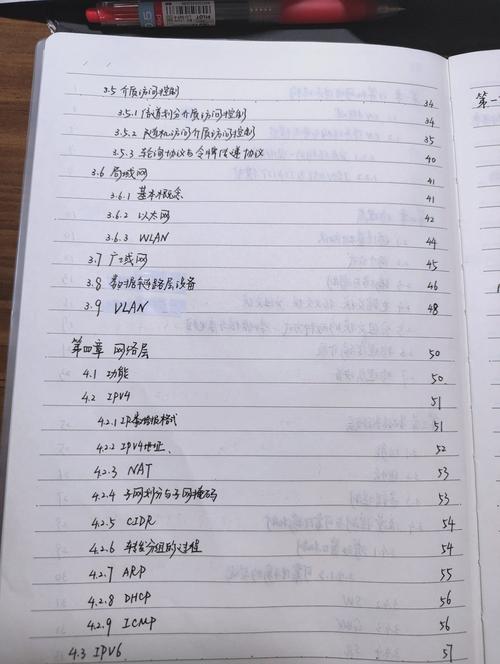 3.5 介质访问控制 34
3.5.1 信道划分介质访问控制 34
3.5.2 随机访问介质访问控制 35
3.5.3 轮询协议与令牌传递协议 40
3.6 局域网 41
3.6.1 基本概念 41
3.6.2 以太网 42
3.6.3 WLAN 44
3.7 广域网 45
3.8 数据链路层设备 46
3.9 VLAN 48
第四章 网络层 50
4.1 功能 50
4.2 IPV4 51
4.2.1 IP数据报格式 51
4.2.2 IPV4地址、 52
4.2.3 NAT 53
4.2.4 子网划分与子网掩码 53
4.2.5 CIDR 54
4.2.6 转发分组的过程 54
4.2.7 ARP 55
4.2.8 DHCP 56
4.2.9 ICMP 56
4.3 IPV6 57
第一